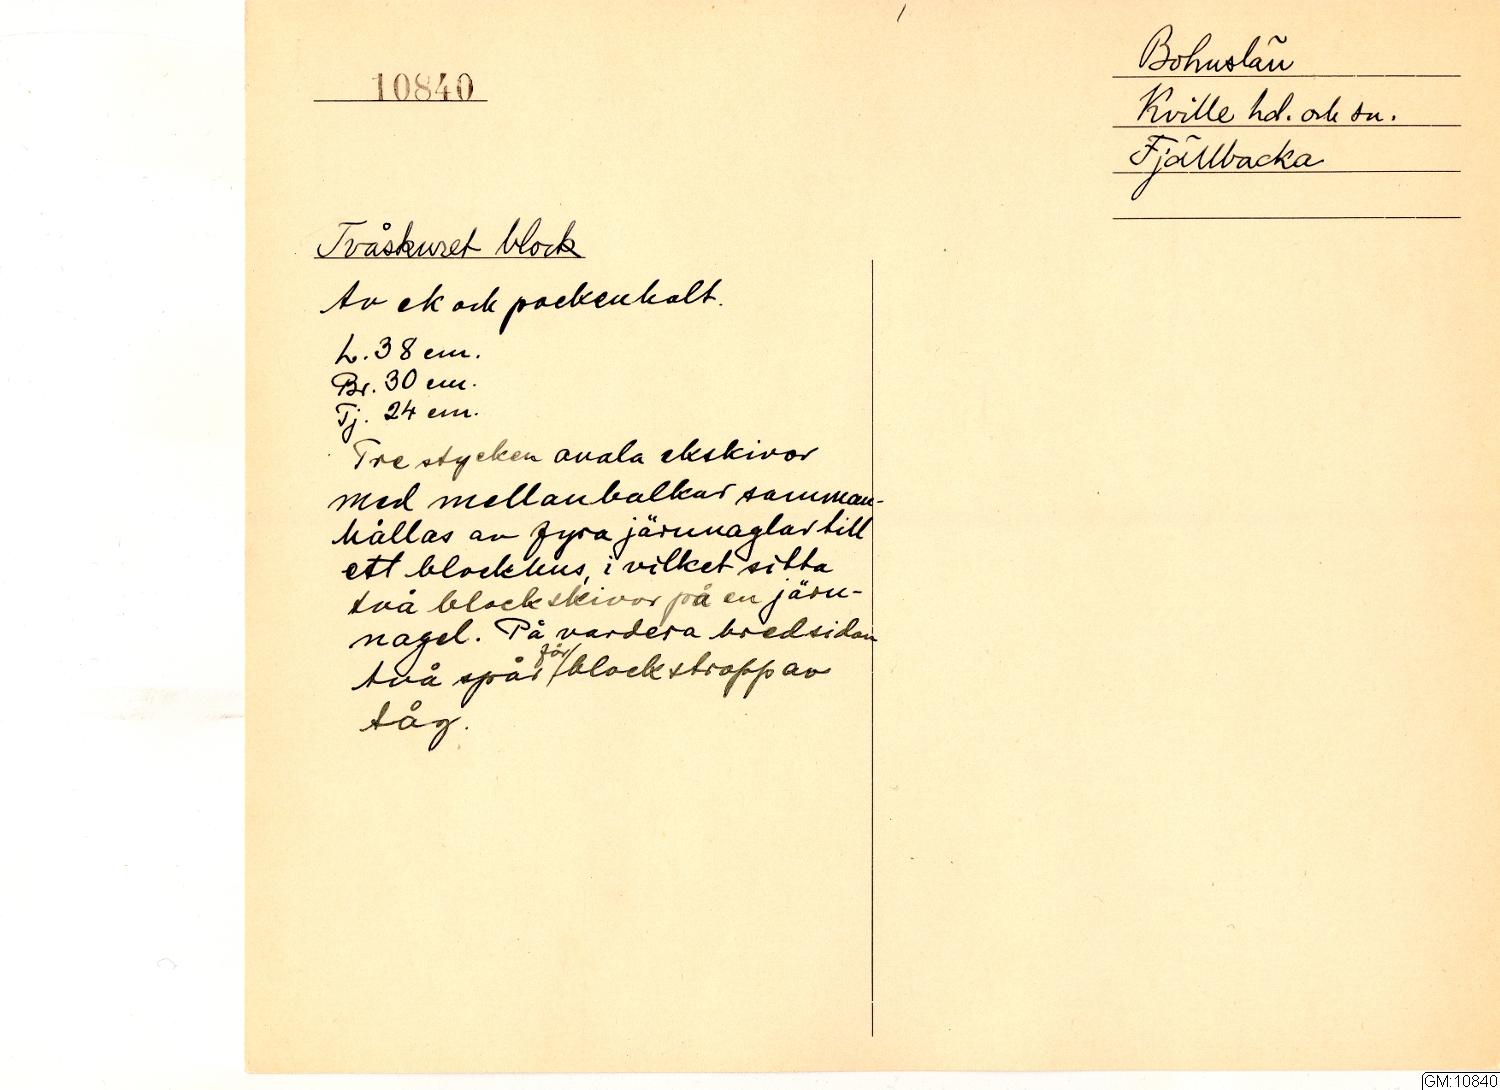 10840
Bohuslän
Kville hd. och sn.
Fjällbacka
Tvåskuret block
Av ek och pockenholt.
L. 38 cm.
Br. 30 cm.
Tj. 24 cm.
Tre stycken ovala ekskivor
med mellanbalkar samman-
hållas av fyra järnnaglar till
ett blockhus, i vilket sitta
två blockskivor på en järn-
nagel. På vardera bredsidan
två spår för blockstropp av
tåg.
GM:10840